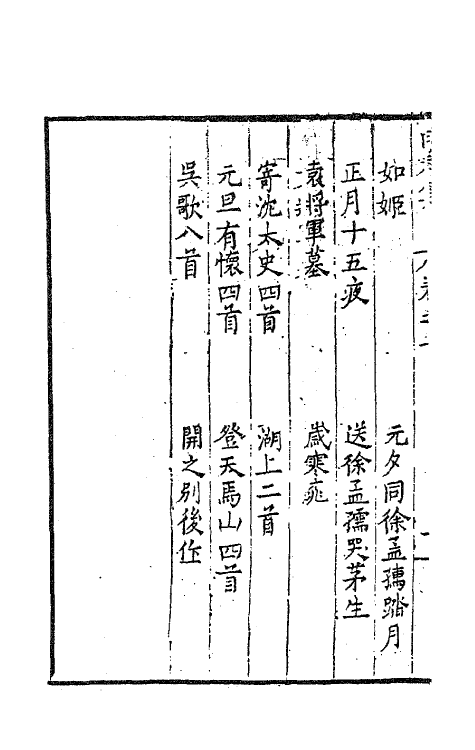 如姬　元夕同徐孟孺踏月
正月十五夜　送徐孟孺哭茅生
袁將軍墓　歲寒
寄沈太史四首　湖上二首
元旦有懷四首　登天馬山四首
吳歌八首　開之別後作